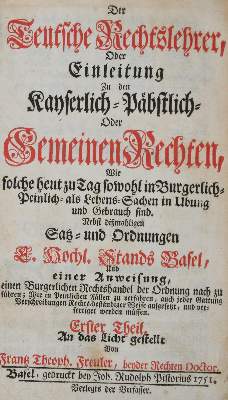 Der
Teutsche Rechtslehrer,
Oder
Einleitung
Zu den
Kayserlich-Päbstlich-
Oder
Gemeinen Rechten,
Wie
solche heut zu Tag sowohl in Burgerlich-
Peinlich- als Lehens-Sachen in Ubung
und Gebrauch sind.
Nebst deßmahligen
Satz- und Ordnungen
E. Hochl. Stands Basel,
Und
einer Anweisung,
einen Burgerlichen Rechtshandel der Ordnung nach zu
führen; Wie in Peinlichen Fällen zu verfahren, auch jeder Gattung
Verschreibungen Rechts-beständiger Weise aufgesetzt, und ver-
fertiget werden müssen.
Erster Theil.
An das Licht gestellt
Von
Frantz Theoph. Freuler, beyder Rechten Doctor.
Basel, gedruckt bey Joh. Rudolph Pistorius 1751.
Verlegts der Verfasser.